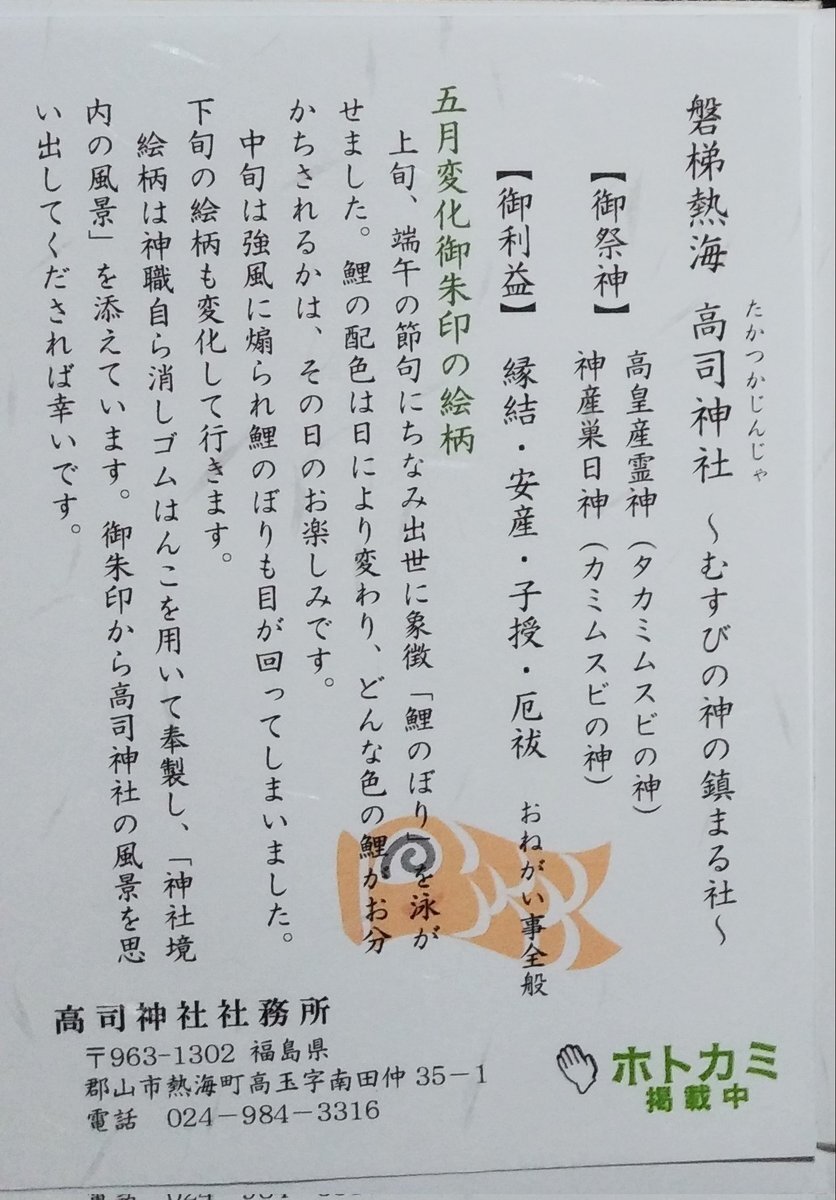 磐梯熱海 高司神社 ～むすびの神の鎮まる社～
たかつかじんじゃ
【御祭神】 高皇産霊神（タカミムスビの神）
神産巣日神（カミムスビの神）
【御利益】 縁結・安産・子授・厄祓 おねがい事全般
五月変化御朱印の絵柄
上旬、端午の節句にちなみ出世に象徴「鯉のぼり」を泳が
せました。鯉の配色は日により変わり、どんな色の鯉がお分
かちされるかは、その日のお楽しみです。
中旬は強風に煽られ鯉のぼりも目が回ってしまいました。
下旬の絵柄も変化して行きます。
絵柄は神職自ら消しゴムはんこを用いて奉製し、「神社境
内の風景」を添えています。御朱印から高司神社の風景を思
い出してくだされば幸いです。
高司神社社務所
〒963-1302 福島県
郡山市熱海町高玉字南田仲 35－1
電話 024－984－3316
ホトカミ
掲載中